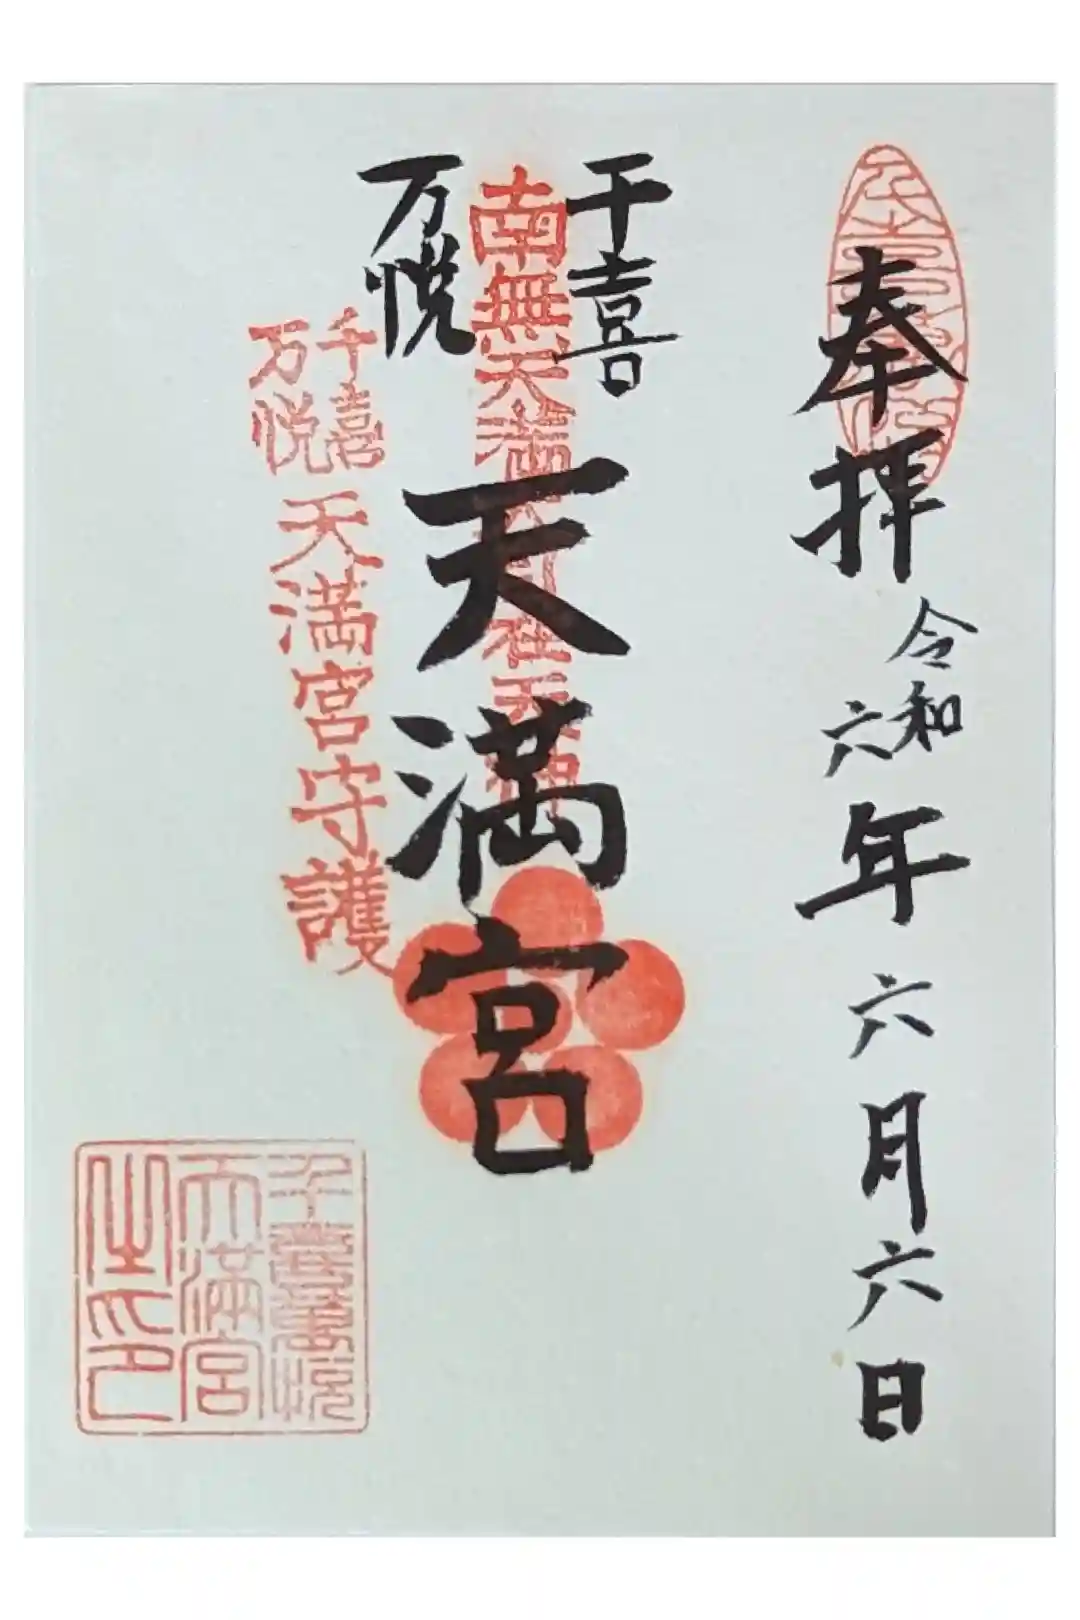 奉拝
令和
六年六月六日
千喜
万悦
天満宮
南無天満大自在天神
千喜
万悦
天満宮守護
千喜萬悦
天満宮
之印